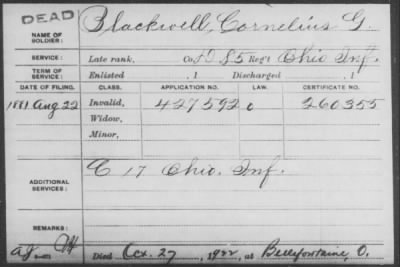 DEAD
NAME OF SOLDIER: Blackwell, Cornelius G.
SERVICE: Late rank, Co. D 85 Reg't Ohio Inf.
TERM OF SERVICE: Enlisted , 1 Discharged , 1
DATE OF FILING. CLASS. APPLICATION NO. LAW. CERTIFICATE NO.
1881 Aug 22 Invalid, 427592 260355
Widow,
Minor,
ADDITIONAL SERVICES: C 17 Ohio. Inf.
REMARKS:
Died Oct. 27, 1922, at Bellefontaine, O.